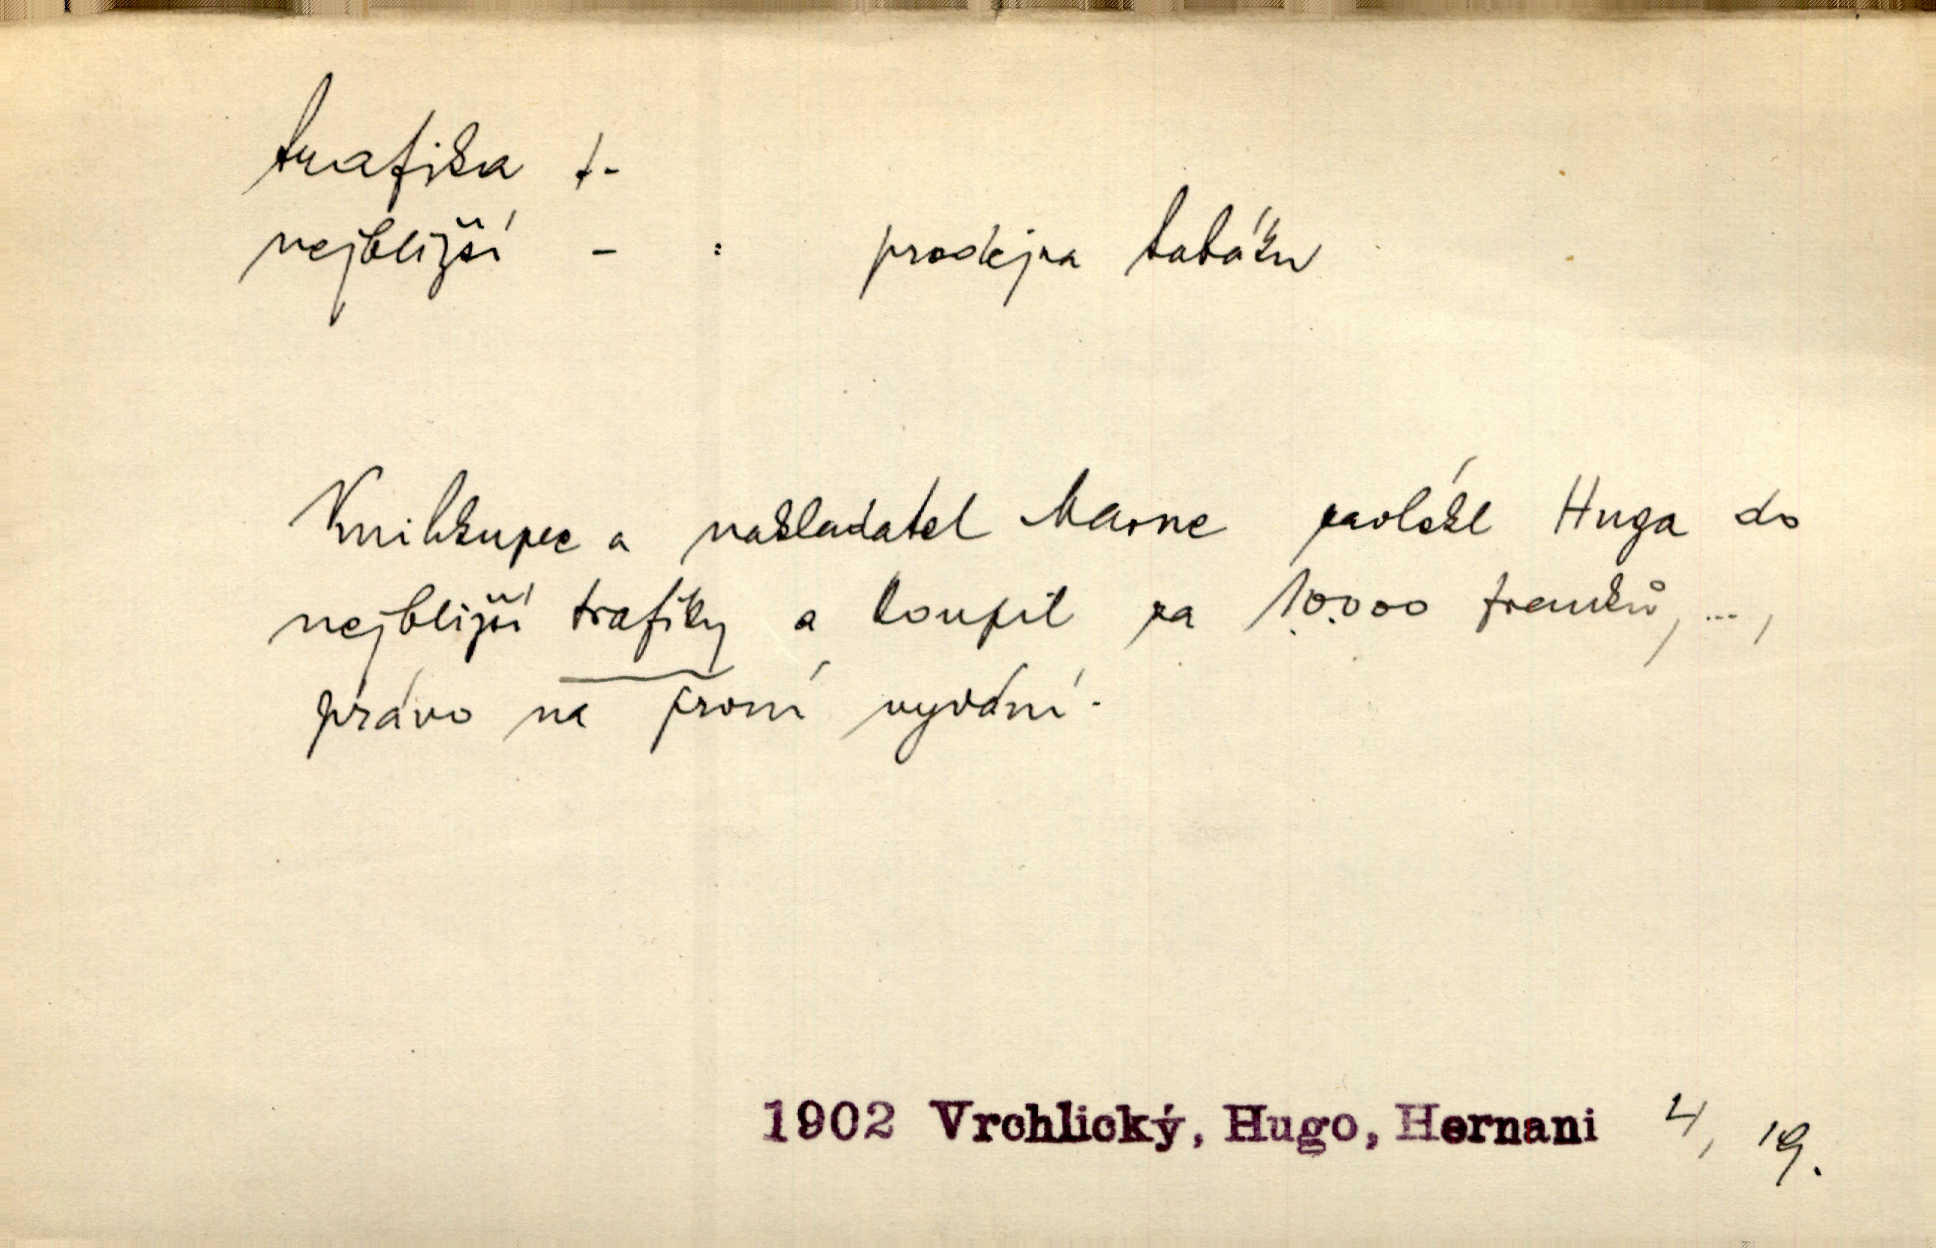 trafika f.
nejbližší – : prodejna tabáku
Knihkupec a nakladatel Mame zavlékl Huga do
nejbližší trafiky a koupil za 10.000 franků, ...,
právo na první vydání.
1902 Vrchlický, Hugo, Hernani 4, 19.